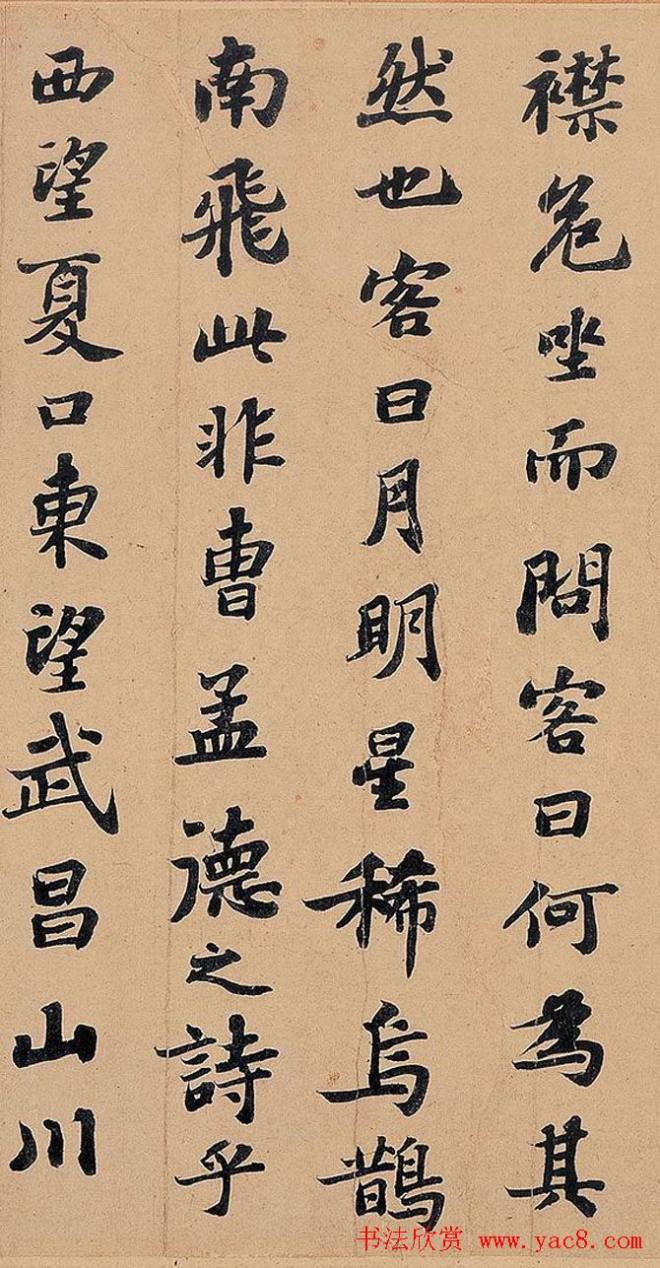 襟危坐而問客曰何為其
然也客曰月明星稀烏鵲
南飛此非曹孟德之詩乎
西望夏口東望武昌山川
书法欣赏 www.yac8.com